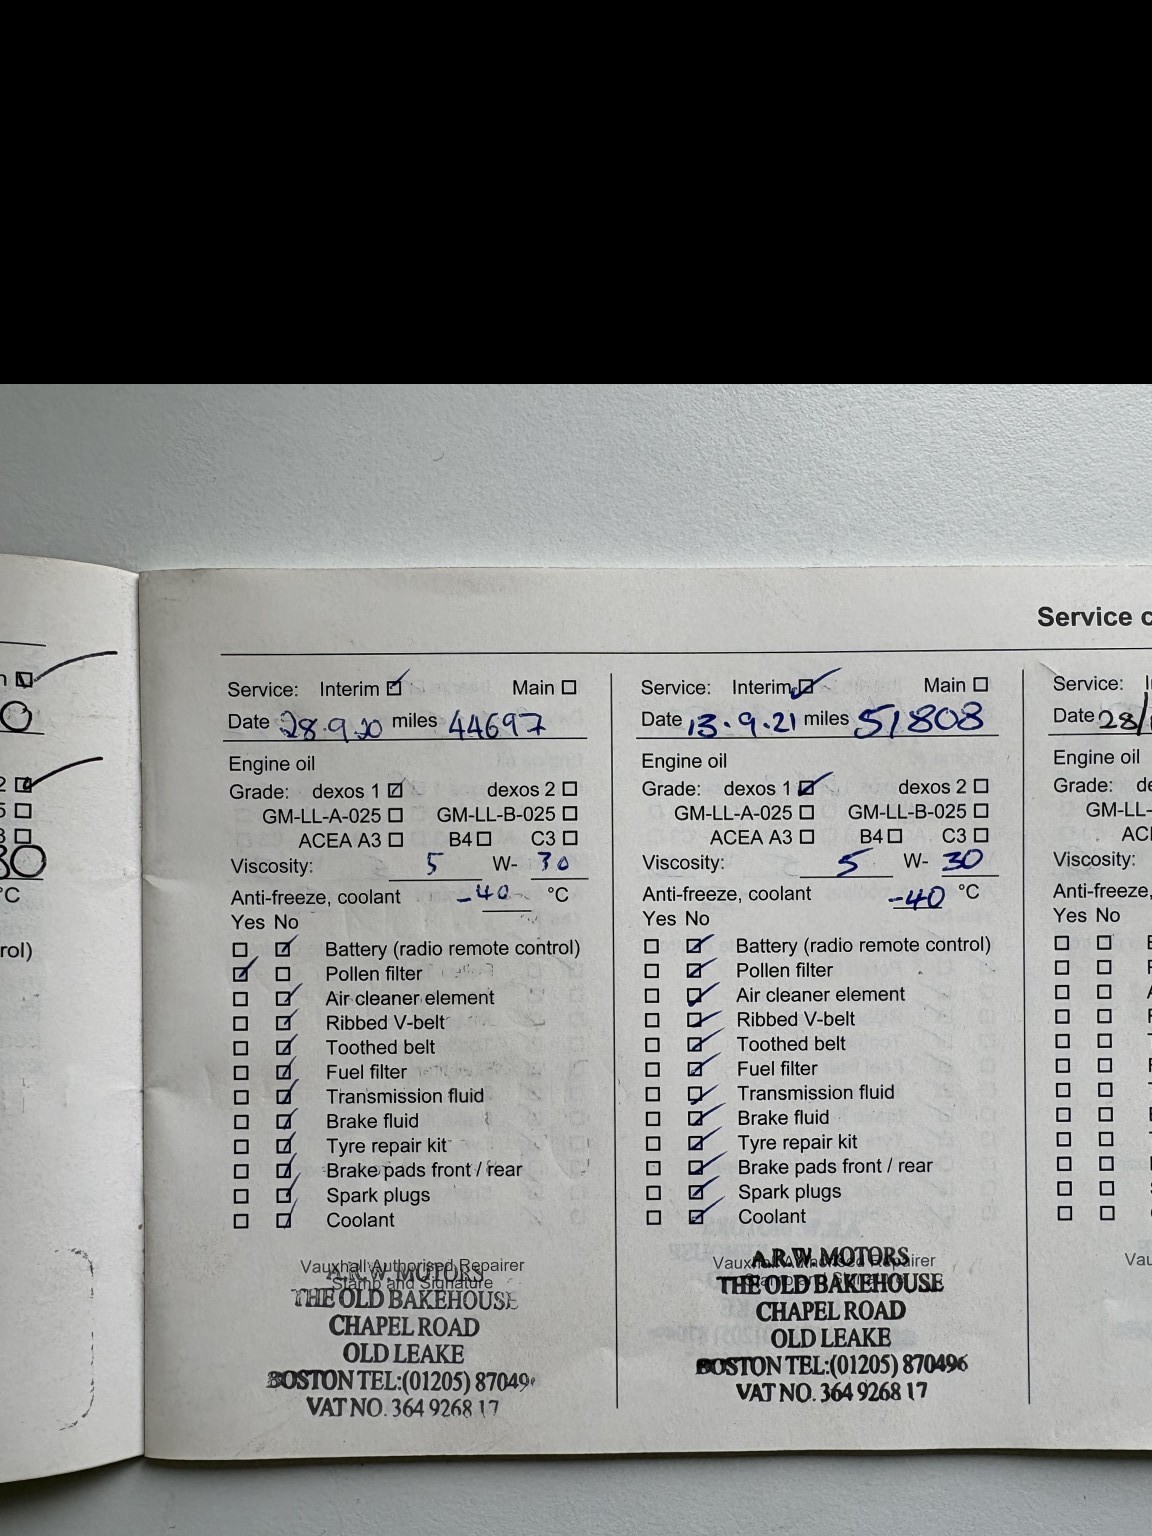 Service c
Service: Interim Main
Date 28.9.20 miles 44697
Engine oil
Grade: dexos 1 dexos 2
GM-LL-A-025 GM-LL-B-025
ACEA A3 B4 C3
Viscosity: 5 W- 30
Anti-freeze, coolant -40 °C
Yes No
Battery (radio remote control)
Pollen filter
Air cleaner element
Ribbed V-belt
Toothed belt
Fuel filter
Transmission fluid
Brake fluid
Tyre repair kit
Brake pads front / rear
Spark plugs
Coolant
Vauxhall Authorised Repairer
Stamp and Signature
A.R.W. MOTORS
THE OLD BAKEHOUSE
CHAPEL ROAD
OLD LEAKE
BOSTON TEL:(01205) 87049
VAT NO. 364 9268 17
Service: Interim Main
Date 13.9.21 miles 51808
Engine oil
Grade: dexos 1 dexos 2
GM-LL-A-025 GM-LL-B-025
ACEA A3 B4 C3
Viscosity: 5 W- 30
Anti-freeze, coolant -40 °C
Yes No
Battery (radio remote control)
Pollen filter
Air cleaner element
Ribbed V-belt
Toothed belt
Fuel filter
Transmission fluid
Brake fluid
Tyre repair kit
Brake pads front / rear
Spark plugs
Coolant
Vauxhall Authorised Repairer
Stamp and Signature
A.R.W. MOTORS
THE OLD BAKEHOUSE
CHAPEL ROAD
OLD LEAKE
BOSTON TEL:(01205) 870496
VAT NO. 364 9268 17
Service: I
Date 28/
Engine oil
Grade: de
GM-LL-
ACE
Viscosity:
Anti-freeze,
Yes No
Vau